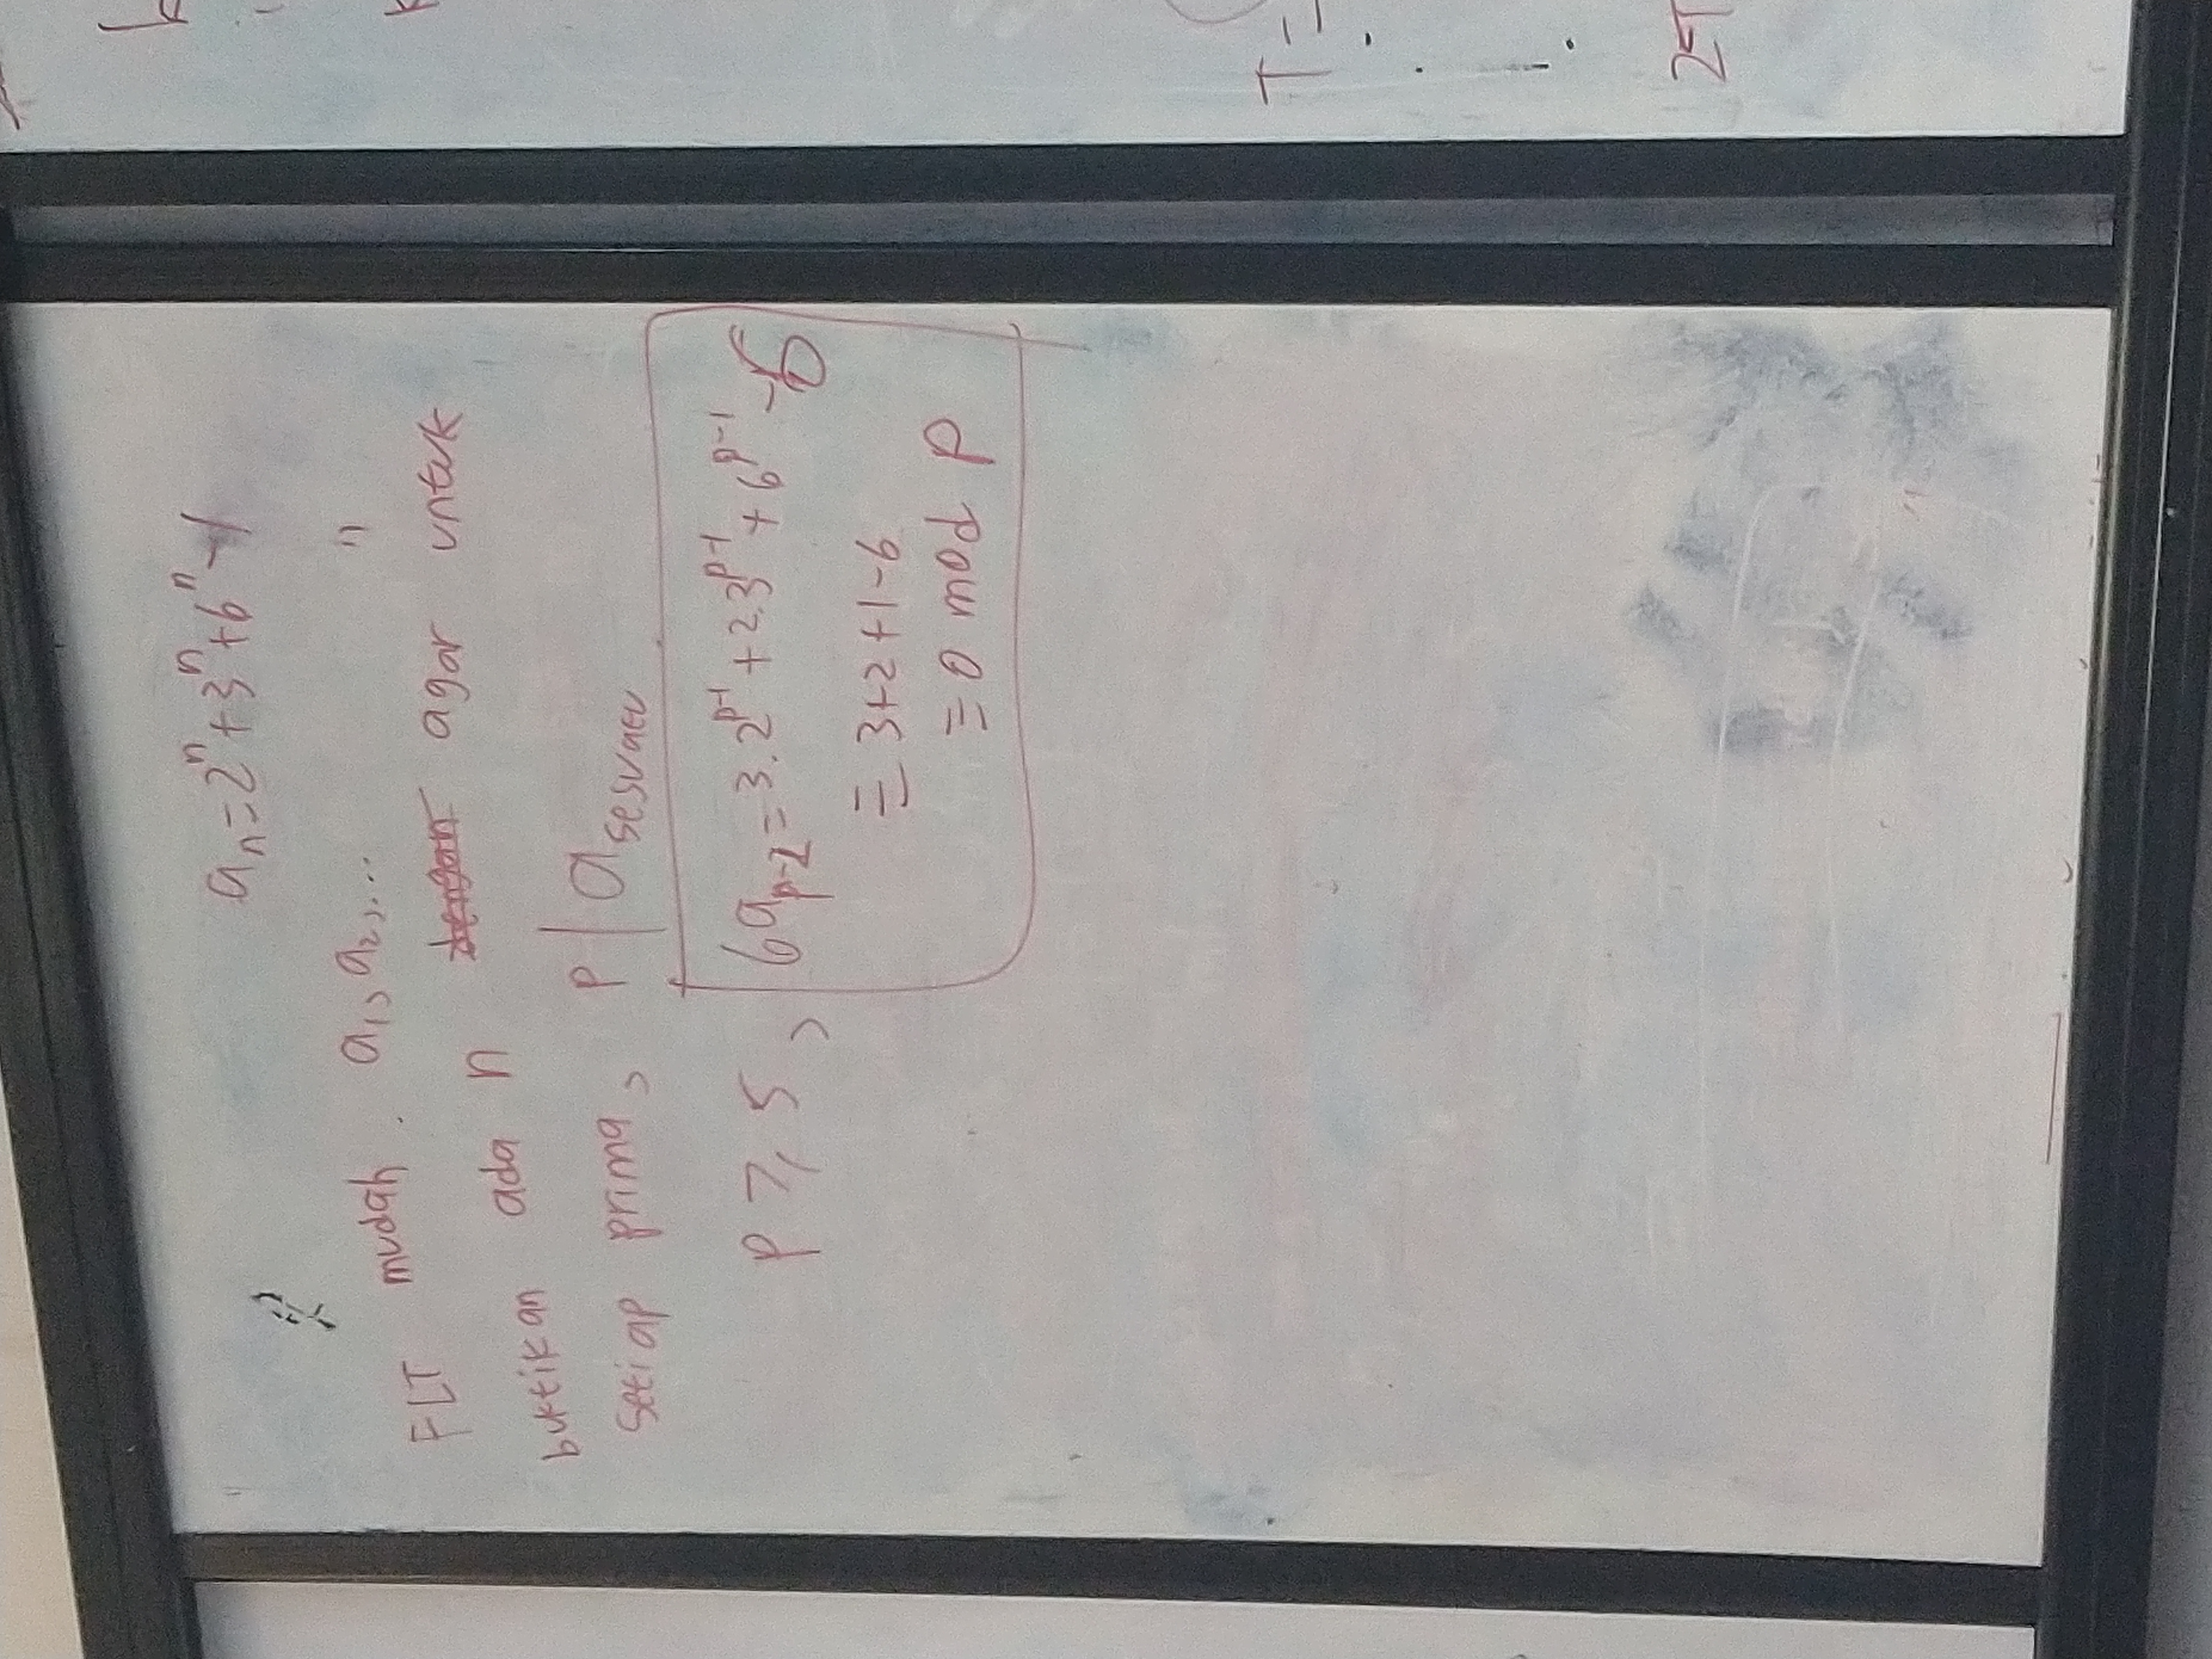 aₙ=2ⁿ+3ⁿ+6ⁿ-1
FLT mudah. a₁, a₂,... "
buktikan ada n dengan agar untuk
setiap prima, p | a sesuatu
p ≥ 5, 6aₚ₋₂=3.2ᵖ⁻¹+2.3ᵖ⁻¹+6ᵖ⁻¹-6
≡ 3+2+1-6
≡ 0 mod p
T=
2T